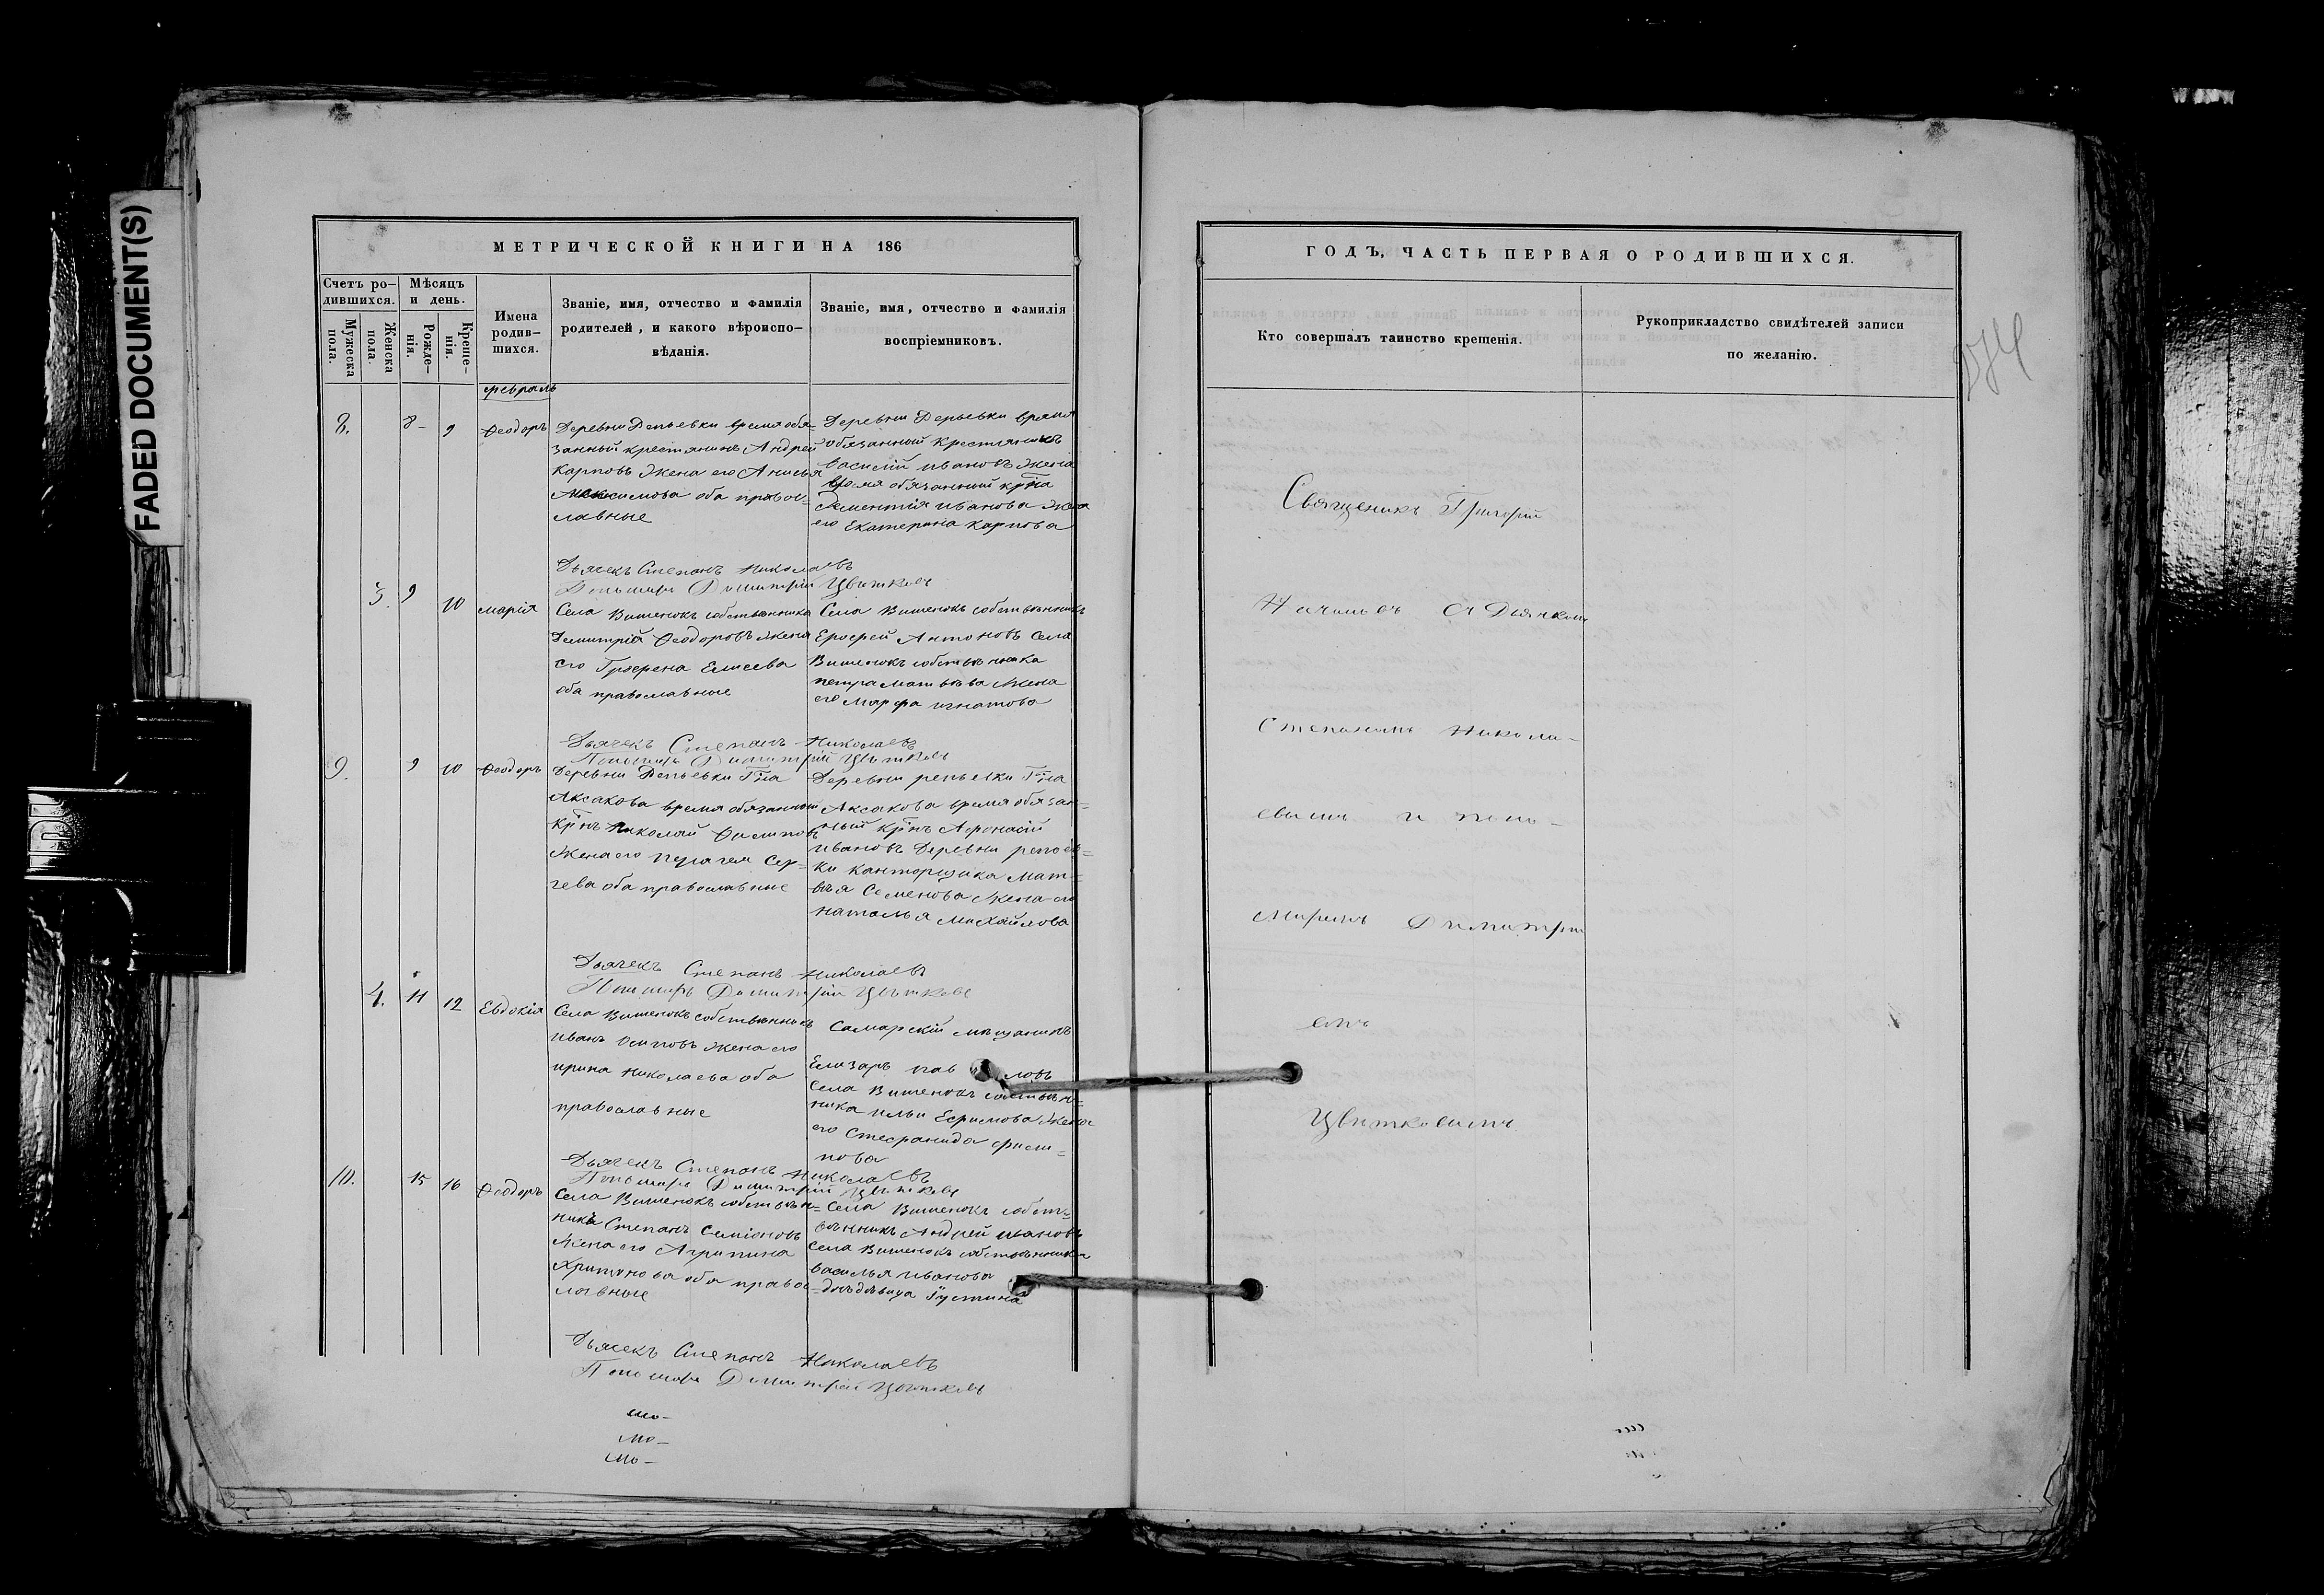 FADED DOCUMENT(S)
МЕТРИЧЕСКОЙ КНИГИ НА 186
Счетъ ро-
дившихся.
Мужеска
пола.
Женска
пола.
Мѣсяцъ
и день.
Рожде-
нія.
Креще-
нія.
Имена
родив-
шихся.
Званіе, имя, отчество и фамилія
родителей, и какого вѣроиспо-
вѣданія.
Званіе, имя, отчество и фамилія
воспріемниковъ.
февраль
8.
8
9
Феодоръ
Деревни Репьевки время обя-
занный крестьянинъ Андрей
Карповъ жена его Анисья
Максимова оба право-
славные
Деревни Репьевки время
обязанный крестьянинъ
василій ивановъ жена
время обязанный кр̃на
иванова жена
его Екатерина Карпова
Дьячекъ Степанъ Николаевъ
Пономарь Димитрій Цвѣтковъ
3.
9
10
марія
Села Вишенокъ собственника
Димитрій Феодоровъ жена
его Елисеева
оба православные
Села Вишенокъ собственникъ
Ерофей Антоновъ села
Вишенокъ собственника
петра матвѣева жена
его Марфа игнатова
Дьячекъ Степанъ Николаевъ
Пономарь Димитрій Цвѣтковъ
9.
9
10
Феодоръ
Деревни Репьевки Г̃на
Аксакова время обязанный
кр̃нъ Николай Филиповъ
жена его Пелагея Сер-
геева оба православные
Деревни репьевки Г̃на
Аксакова время обязан=
ный кр̃нъ Афонасій
ивановъ Деревни репьев=
ки канторщика Мат=
вѣя Семенова жена его
наталья Михайлова
Дьячекъ Степанъ Николаевъ
Пономарь Димитрій Цвѣтковъ
4.
11
12
Евдокія
Села Вишенокъ собственникъ
иванъ Осиповъ жена его
ирина Николаева оба
православные
Самарскій мѣщанинъ
Елизаръ пав ловъ
Села Вишенокъ собствен=
ника ильи Ефимова жена
его Стефанида фили=
пова
Дьячекъ Степанъ Николаевъ
Пономарь Димитрій Цвѣтковъ
10.
15
16
Феодоръ
Села Вишенокъ собствен=
никъ Степанъ Семіоновъ
жена его Агрипина
Харитонова оба правос=
лавные
Села Вишенокъ собст=
венникъ Андрей ивановъ
Села Вишенокъ собственника
василья иванова
дѣвица Іустина
Дьячекъ Степанъ Николаевъ
Пономарь Димитрій Цвѣтковъ
ГОДЪ, ЧАСТЬ ПЕРВАЯ О РОДИВШИХСЯ.
Кто совершалъ таинство крещенія.
Рукоприкладство свидѣтелей записи
по желанію.
Священникъ Григорій
съ Дьячкомъ
Степаномъ Никола-
евымъ и поно-
маремъ Димитрі
емъ
Цвѣтковымъ